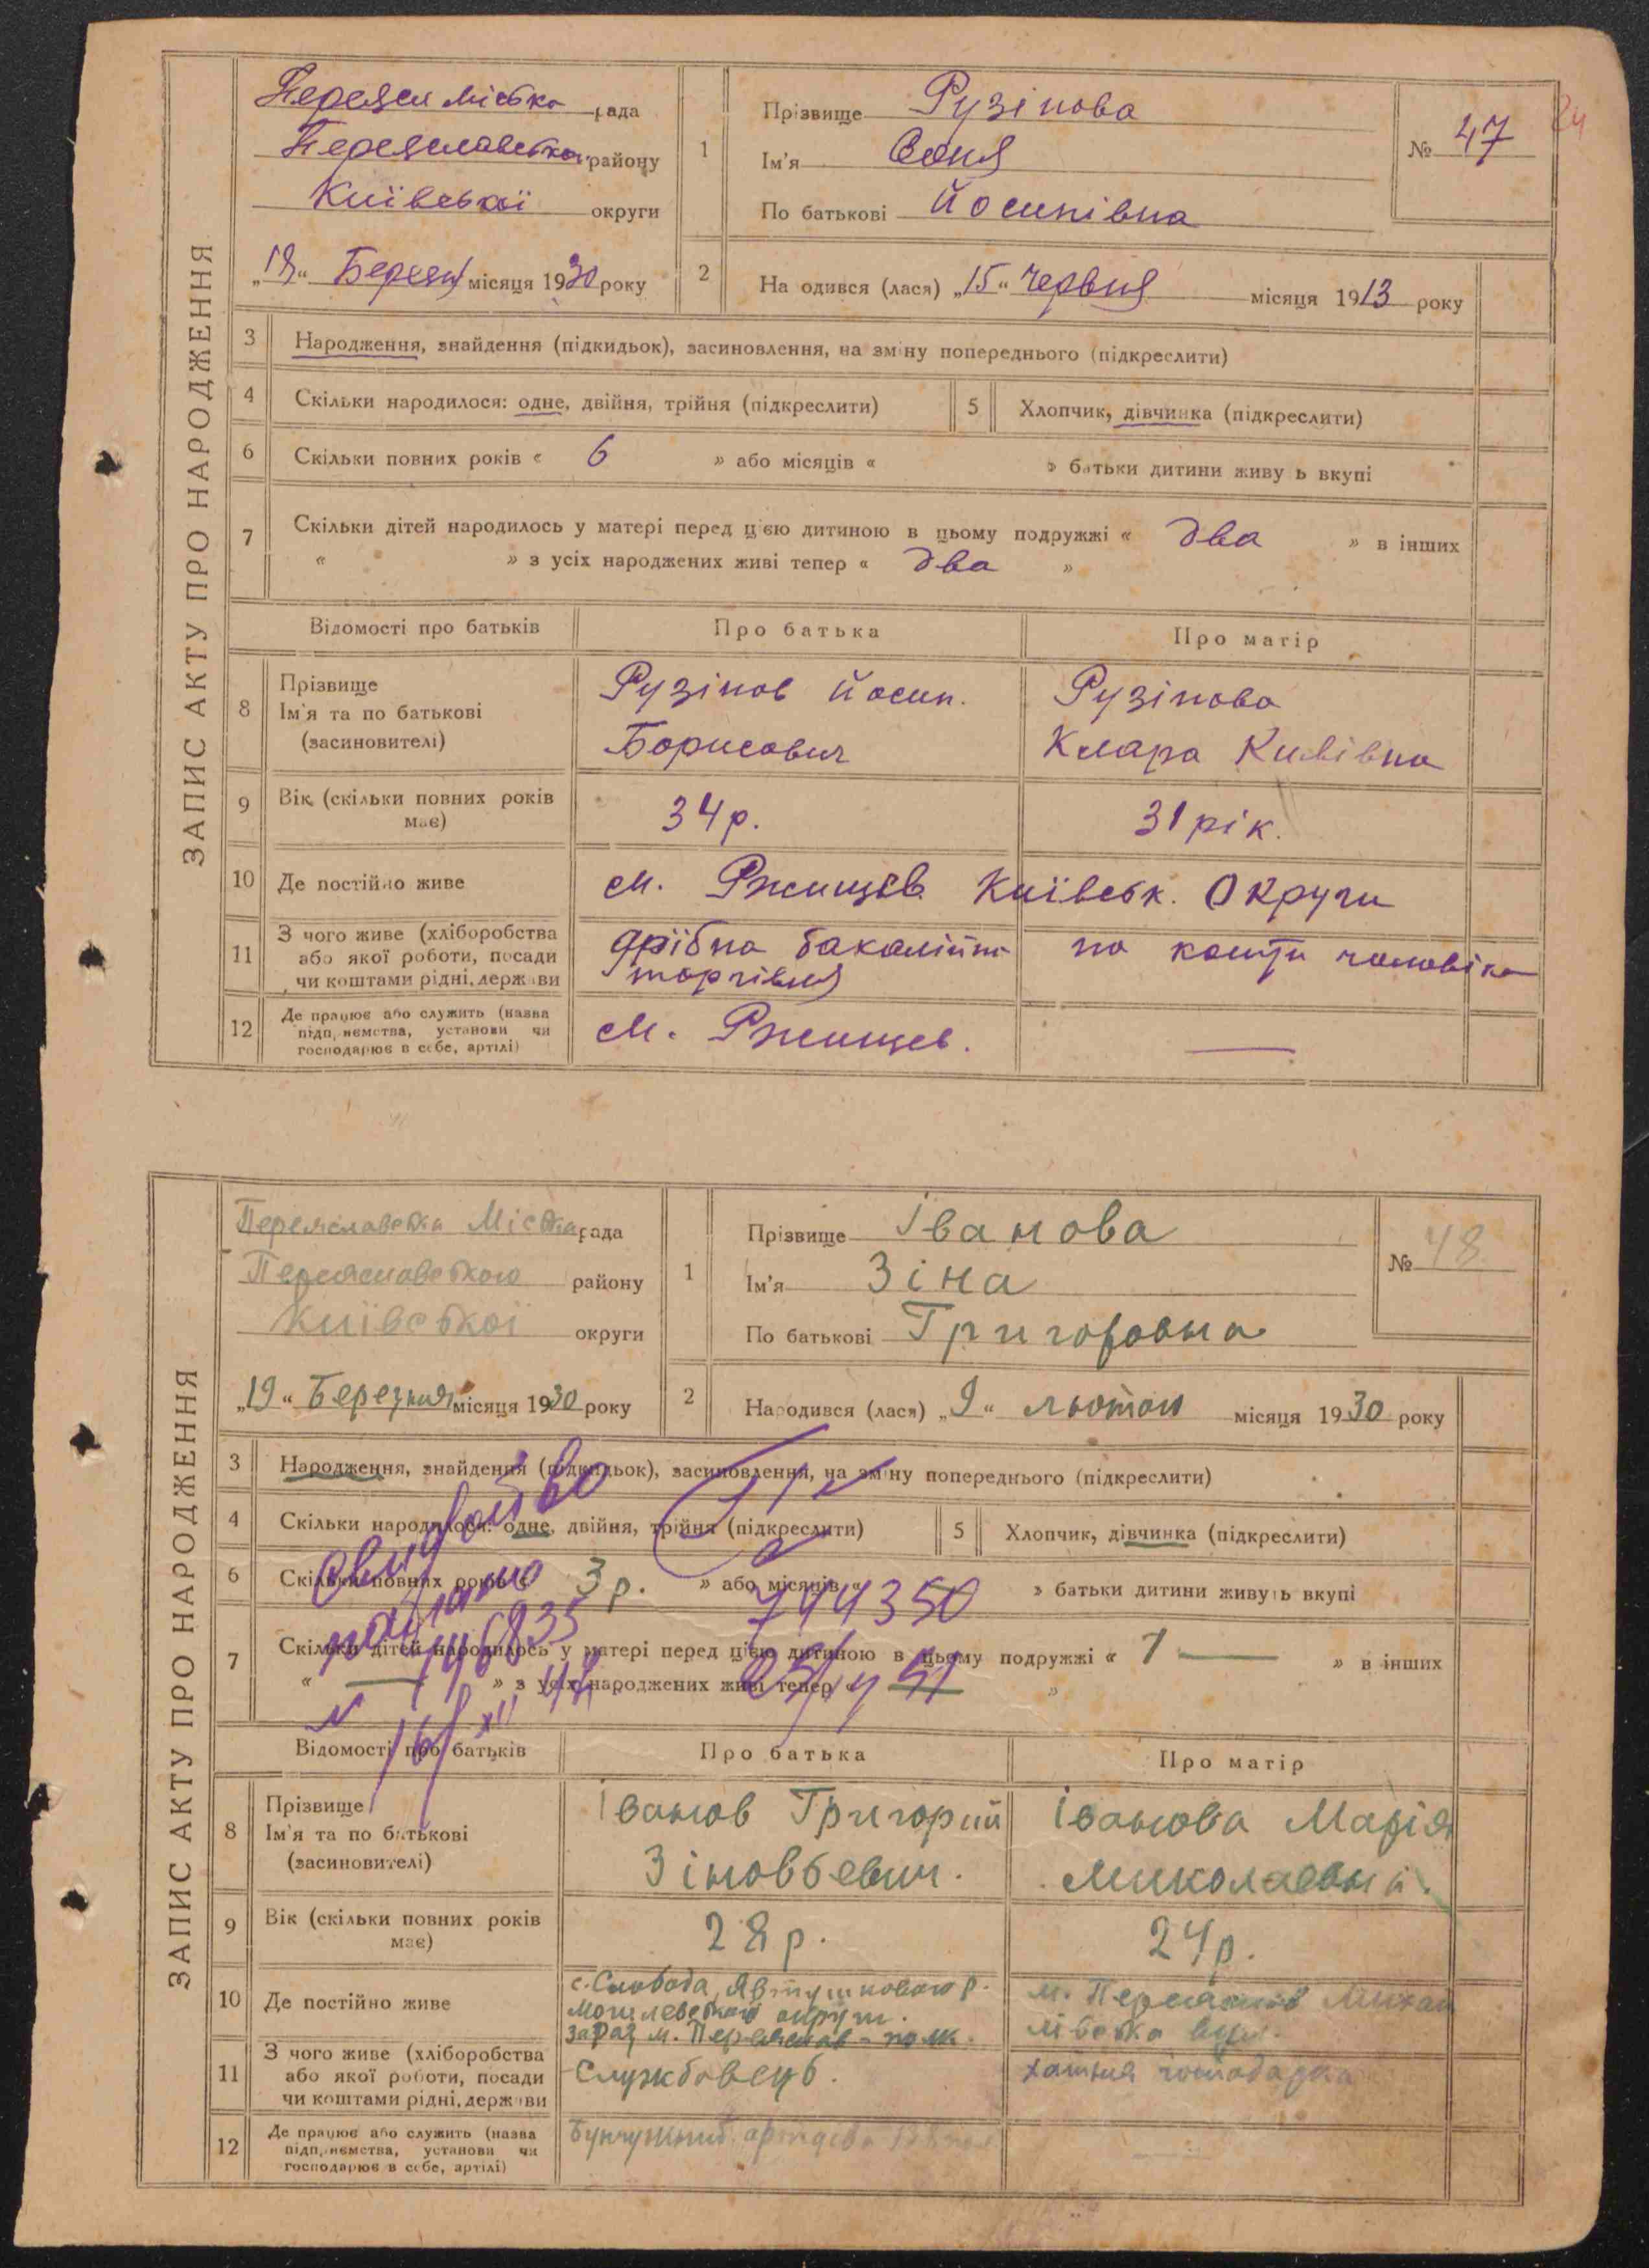 24
ЗАПИС АКТУ ПРО НАРОДЖЕННЯ
Переяся міська рада
Переяславськ. району
Київської округи
„19“ Березня місяця 1930 року
1
Прізвище Рузінова
Ім'я Соня
По батькові Йосипівна
№ 47
2
Народився (лася) „15“ Червня місяця 1913 року
3 Народження, знайдення (підкидьок), засиновлення, на зміну попереднього (підкреслити)
4 Скільки народилося: одне, двійня, трійня (підкреслити)
5 Хлопчик, дівчинка (підкреслити)
6 Скільки повних років « 6 » або місяців « » батьки дитини живуть вкупі
7 Скільки дітей народилось у матері перед цією дитиною в цьому подружжі « два » в інших
« » з усіх народжених живі тепер « два »
Відомості про батьків Про батька Про матір
8 Прізвище
Ім'я та по батькові
(засиновителі)
Рузінов Йосип.
Борисович
Рузінова
Клара Кивівна
9 Вік (скільки повних років має)
34 р.
31 рік.
10 Де постійно живе
м. Ржищів Київськ. Округи
11 З чого живе (хліборобства
або якої роботи, посади
чи коштами рідні, держави
дрібна бакалійна
торгівля
на кошти чоловіка
12 Де працює або служить (назва
підприємства, установи чи
господарює в себе, артілі)
м. Ржищев.
ЗАПИС АКТУ ПРО НАРОДЖЕННЯ
Переяславська Міська рада
Переяславського району
Київської округи
„19“ Березня місяця 1930 року
1
Прізвище Іванова
Ім'я Зіна
По батькові Григоровна
№ 48
2
Народився (лася) „9“ лютого місяця 1930 року
3 Народження, знайдення (підкидьок), засиновлення, на зміну попереднього (підкреслити)
4 Скільки народилося: одне, двійня, трійня (підкреслити)
5 Хлопчик, дівчинка (підкреслити)
6 Скільки повних років « 3 р. » або місяців « » батьки дитини живуть вкупі
744350
7 Скільки дітей народилось у матері перед цією дитиною в цьому подружжі « 1 — » в інших
« — » з усіх народжених живі тепер « — »
Відомості про батьків Про батька Про матір
8 Прізвище
Ім'я та по батькові
(засиновителі)
Іванов Григорий
Зіновьевич.
Іванова Марія
Миколаевна.
9 Вік (скільки повних років має)
28 р.
24 р.
10 Де постійно живе
с. Слобода, Явтушкового р.
Могилевської округи.
зараз м. Переяслав
м. Переяслав
11 З чого живе (хліборобства
або якої роботи, посади
чи коштами рідні, держави
Службовець.
хатня господарка
12 Де працює або служить (назва
підприємства, установи чи
господарює в себе, артілі)